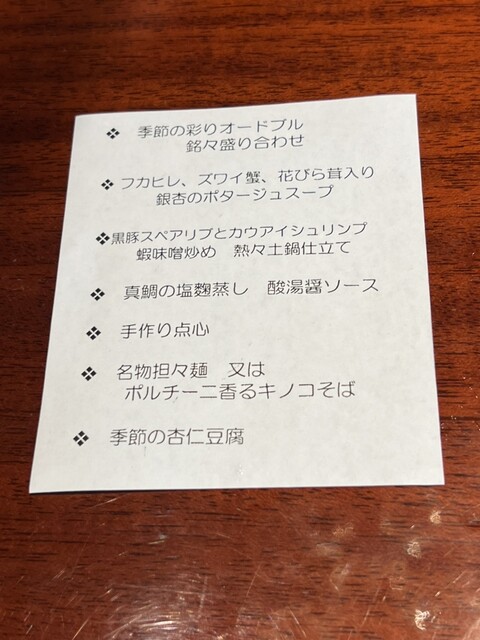 ❖ 季節の彩りオードブル
銘々盛り合わせ
❖ フカヒレ、ズワイ蟹、花びら茸入り
銀杏のポタージュスープ
❖ 黒豚スペアリブとカウアイシュリンプ
蝦味噌炒め 熱々土鍋仕立て
❖ 真鯛の塩麴蒸し 酸湯醤ソース
❖ 手作り点心
❖ 名物担々麺 又は
ポルチーニ香るキノコそば
❖ 季節の杏仁豆腐